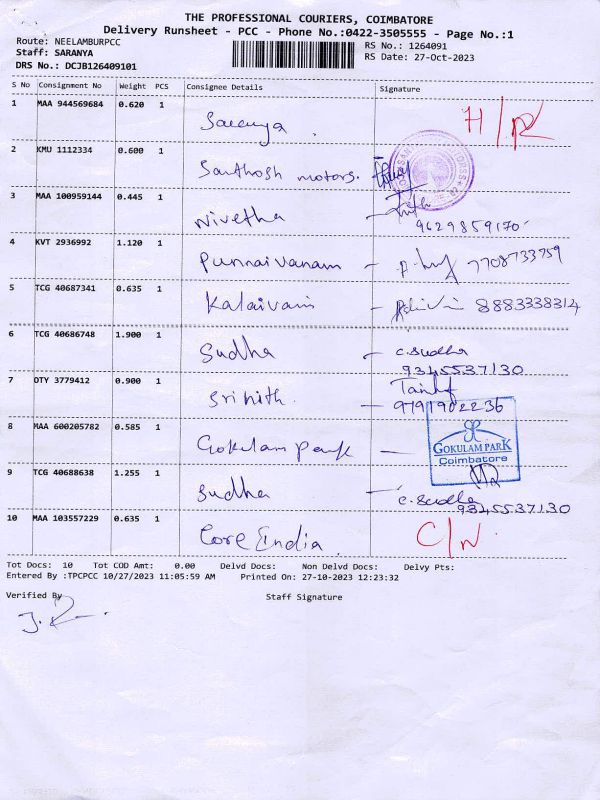 THE PROFESSIONAL COURIERS, COIMBATORE
Delivery Runsheet - PCC - Phone No.:0422-3505555 - Page No.:1
Route: NEELAMBURPCC RS No.: 1264091
Staff: SARANYA RS Date: 27-Oct-2023
DRS No.: DCJB126409101
S No Consignment No Weight PCS Consignee Details Signature
1 MAA 944569684 0.620 1 H/R
Saranya
2 KMU 1112334 0.600 1
Santhosh motors.
3 MAA 100959144 0.445 1
Nivetha
9629859170
4 KVT 2936992 1.120 1
Punnaivanam - 7708733759
5 TCG 40687341 0.635 1
Kalaivani - 8883338314
6 TCG 40686748 1.900 1
Sudha - C.Sudha
9345537130
7 OTY 3779412 0.900 1
Srihith. - 9791902236
8 MAA 600205782 0.585 1
Gokulam Park -
GOKULAM PARK
Coimbatore
9 TCG 40688638 1.255 1
Sudha - C.Sudha
9345537130
10 MAA 103557229 0.635 1
Core India. C/N.
Tot Docs: 10 Tot COD Amt: 0.00 Delvd Docs: Non Delvd Docs: Delvy Pts:
Entered By :TPCPCC 10/27/2023 11:05:59 AM Printed On: 27-10-2023 12:23:32
Verified By Staff Signature